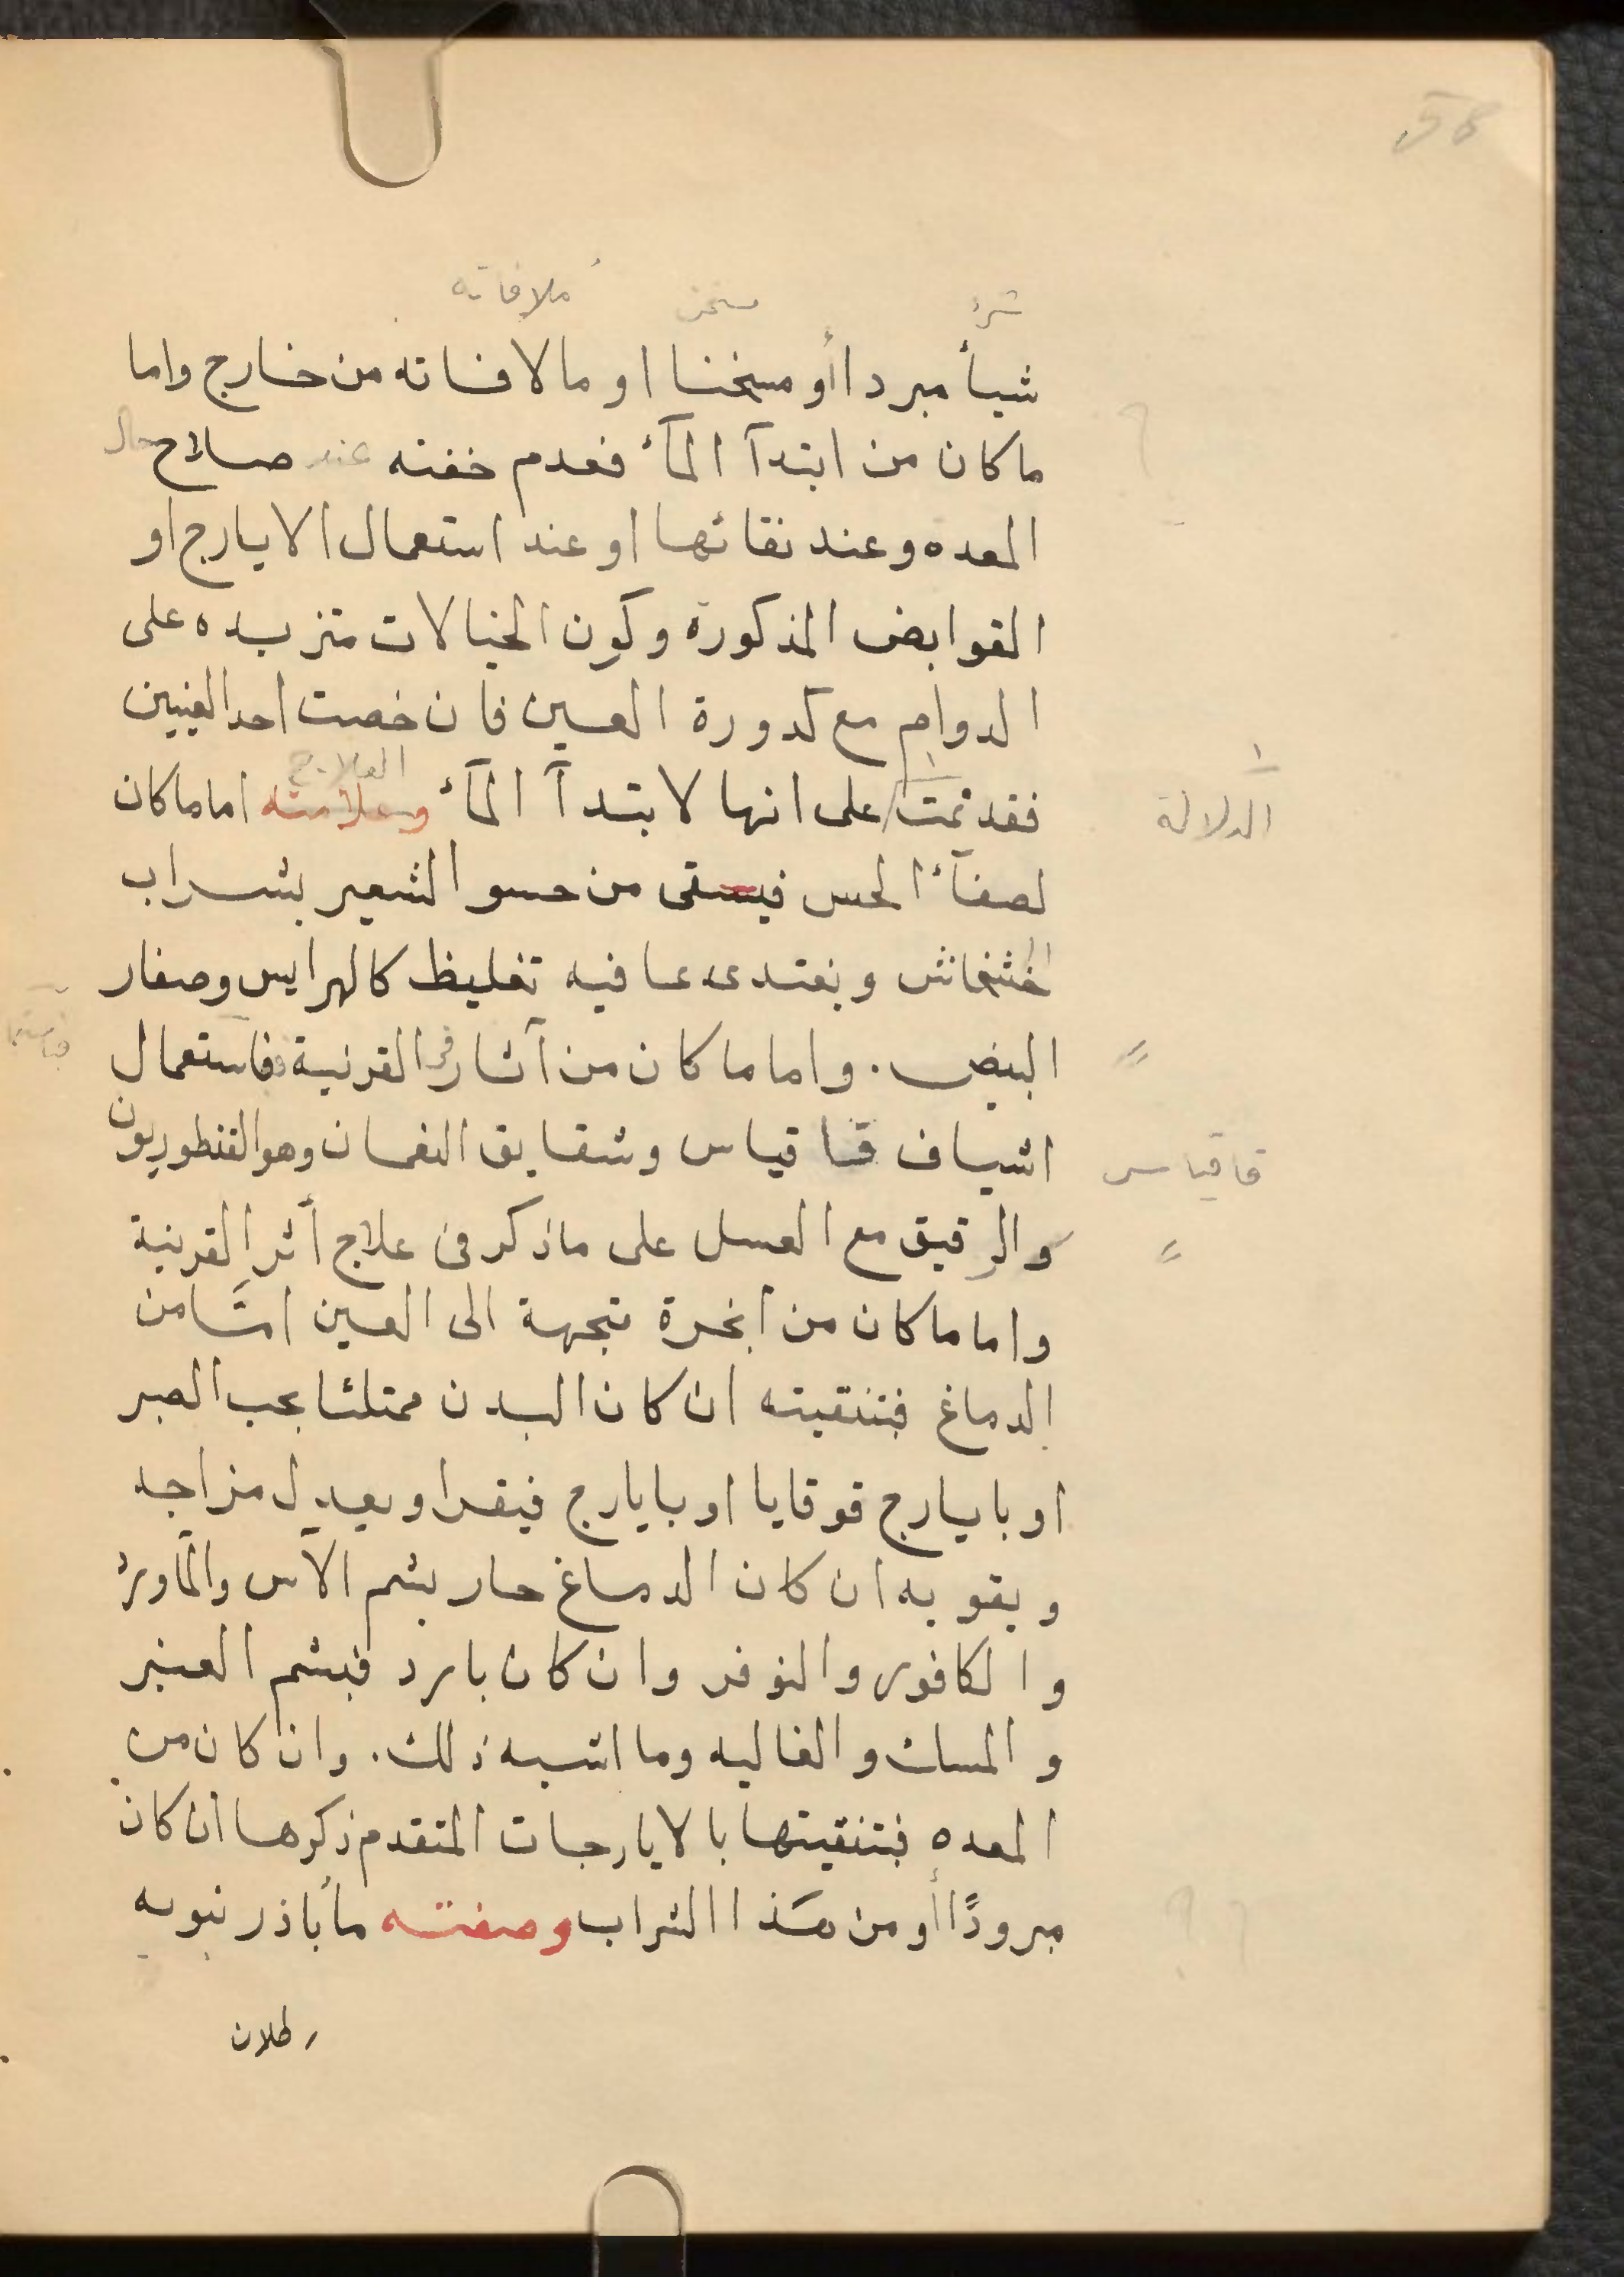 58
ملاقاته
شيأ مبردا أو مسخنا او مالاقاته من خارج واما
ما كان من ابتدآ المآء فعدم خفته عند صلاح حال
المعده وعند نقائها او عند استعمال الايارج او
القوابض المذكورة وكون الخيالات متزيده على
الدوام مع كدورة العين فان خصت احد العينين
العلاج
فقد تمت على انها لابتدآ المآء وعلامته اما ما كان
الدلالة
لصفآء الحس فيستى من حسو الشعير بشراب
الخشخاش وبغتدى بما فيه تغليظ كالهرايس وصفار
البيض. واما ما كان من آثار في القرنية فاستعمال
اشياف قاقياس وشقايق النعمان وهو القنطوريون
قاقياس
والرقيق مع العسل على ماذكر فى علاج أثر القرنية
واما ما كان من ابخرة متجهة الى العين امّا من
الدماغ فبتنقيته ان كان البدن ممتلئا بحب الصبر
او بايارج قوقايا او بايارج فيقرا ويعدل مزاجه
ويقويه ان كان الدماغ حار بشم الآس والمآورد
والكافور والنوفر وان كان بارد فبشم العنبر
والمسك والغاليه وما اشبه ذلك. وان كان من
المعده فبتنقيتها بالايارجات المتقدم ذكرها ان كان
مبرودًا أو من هذا الشراب وصفته مأباذرنبويه
رطلان